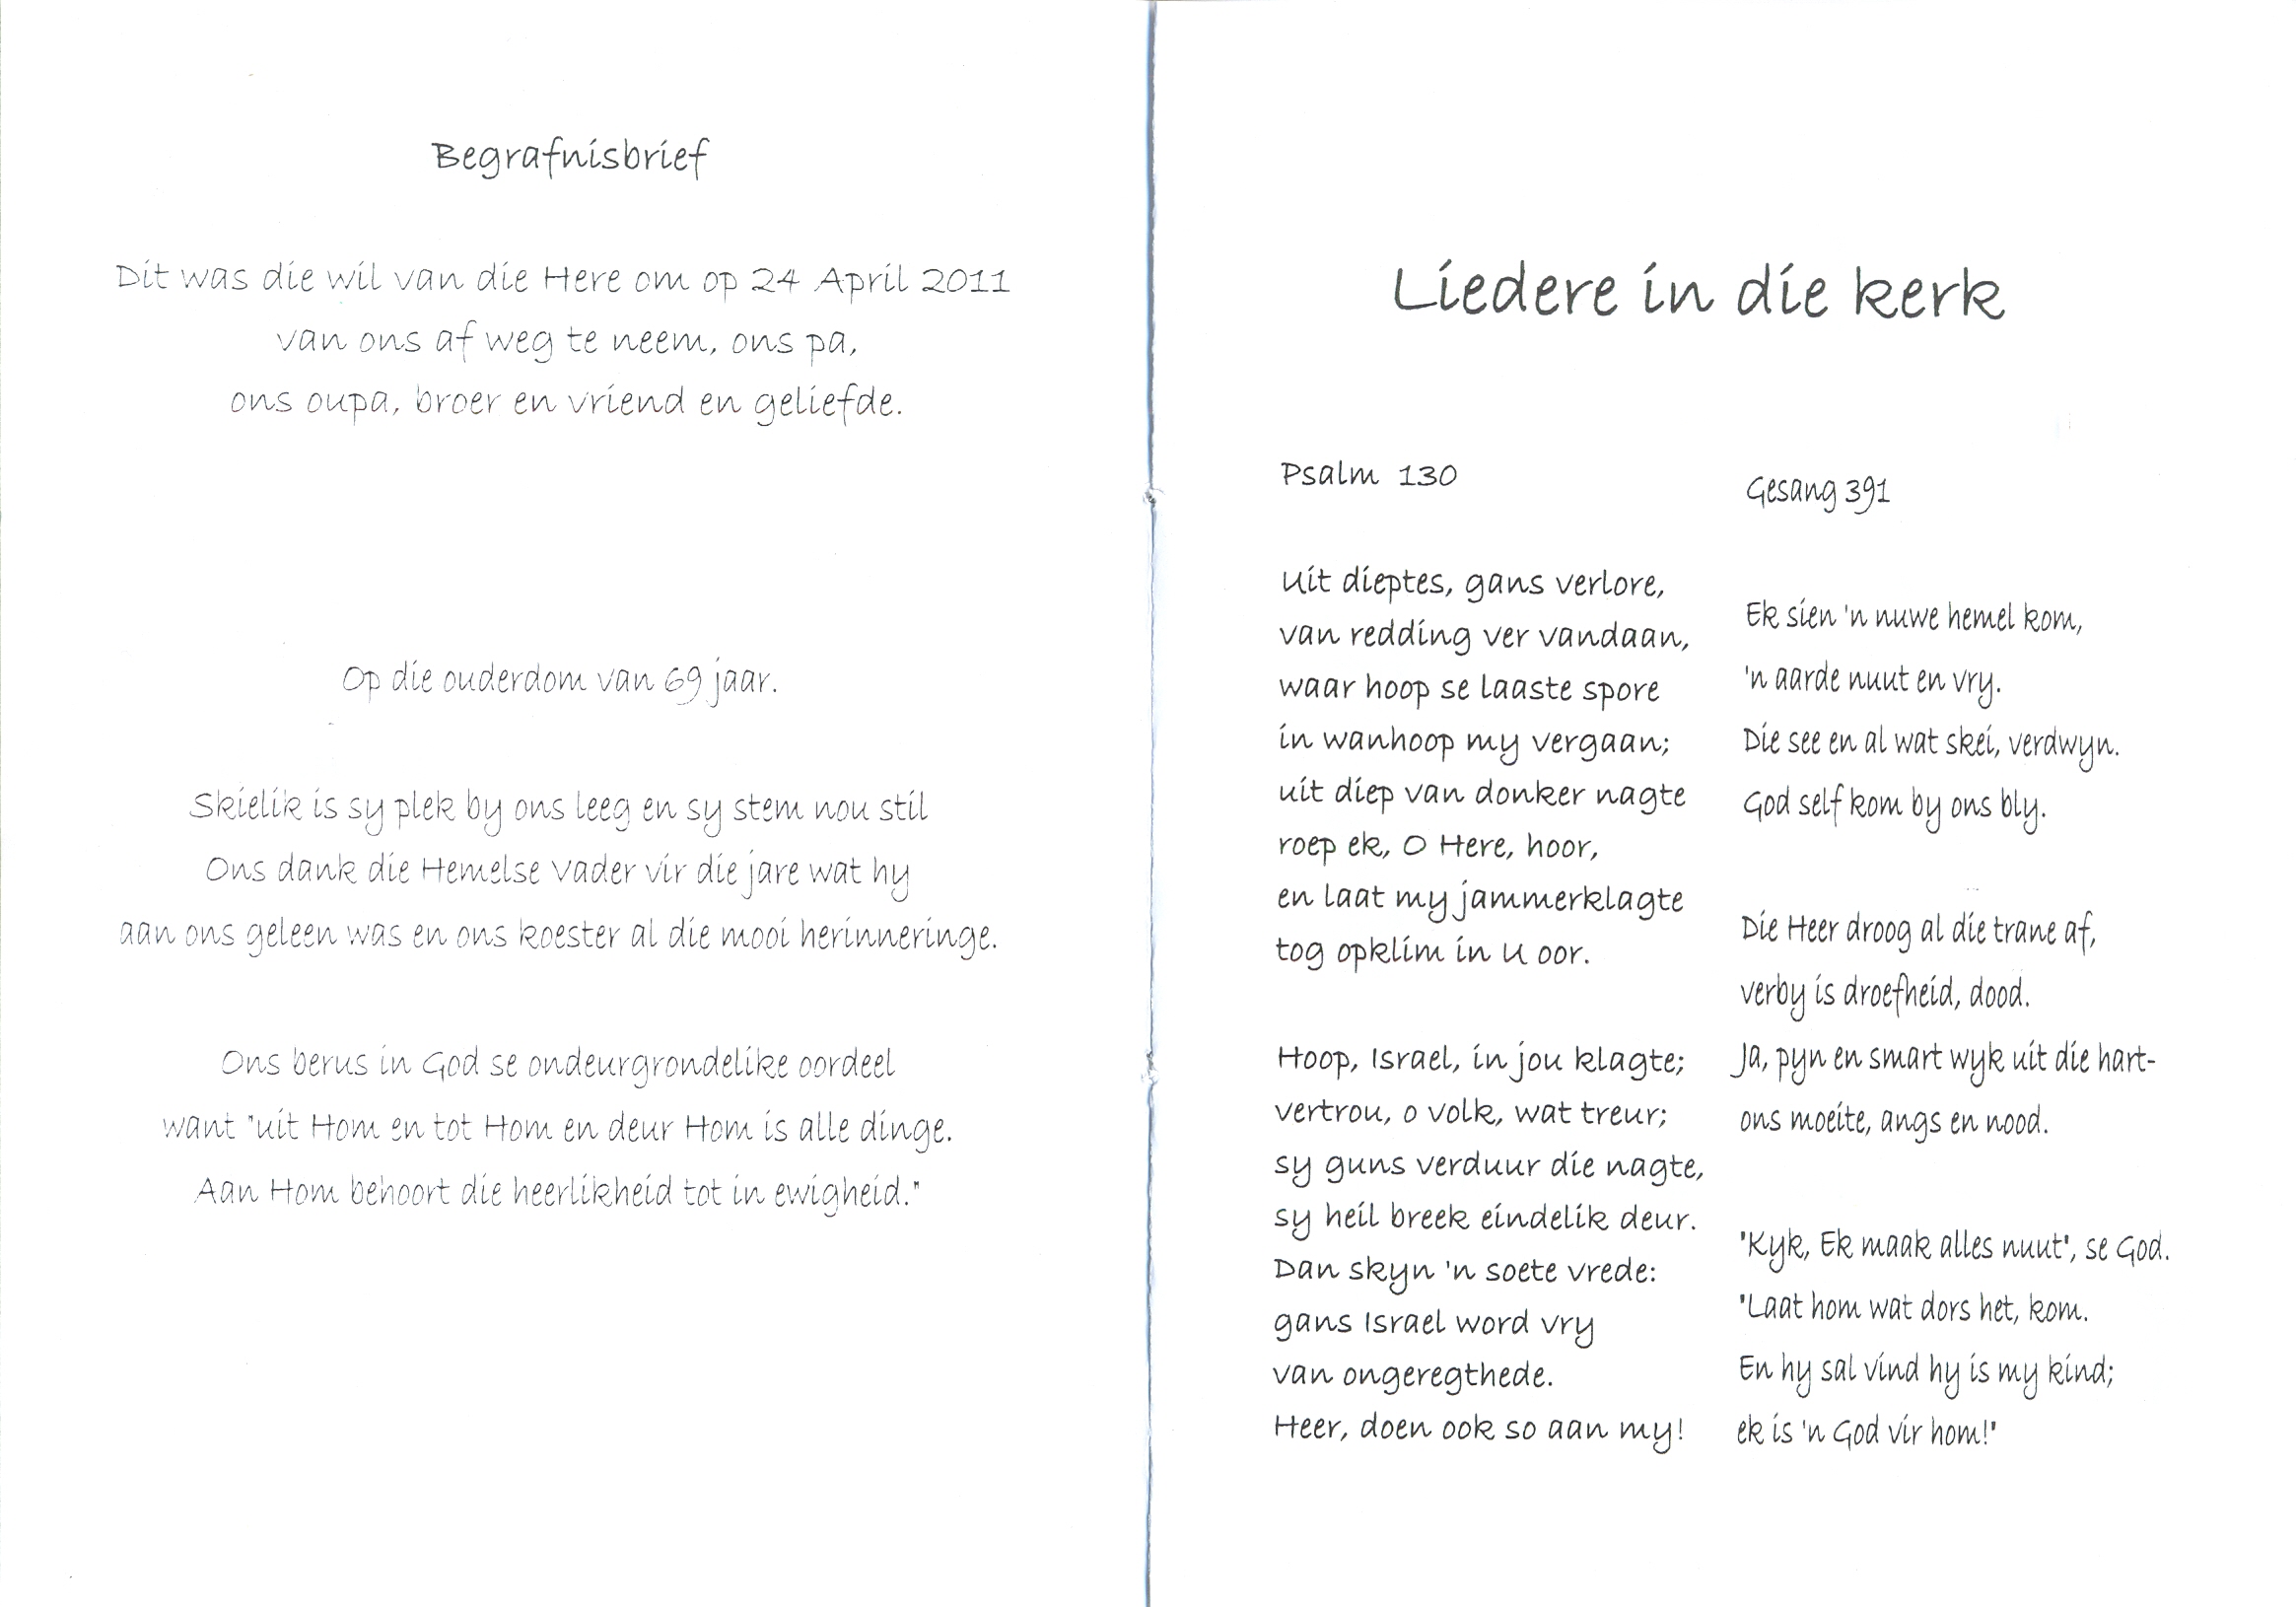 Begrafnisbrief
Dit was die wil van die Here om op 24 April 2011
van ons af weg te neem, ons pa,
ons oupa, broer en vriend en geliefde.
Op die ouderdom van 69 jaar.
Skielik is sy plek by ons leeg en sy stem nou stil
Ons dank die Hemelse Vader vir die jare wat hy
aan ons geleen was en ons koester al die mooi herinneringe.
Ons berus in God se ondeurgrondelike oordeel
want "uit Hom en tot Hom en deur Hom is alle dinge.
Aan Hom behoort die heerlikheid tot in ewigheid."
Liedere in die kerk
Psalm 130
Uit dieptes, gans verlore,
van redding ver vandaan,
waar hoop se laaste spore
in wanhoop my vergaan;
uit diep van donker nagte
roep ek, O Here, hoor,
en laat my jammerklagte
tog opklim in U oor.
Hoop, Israel, in jou klagte;
vertrou, o volk, wat treur;
sy guns verduur die nagte,
sy heil breek eindelik deur.
Dan skyn 'n soete vrede:
gans Israel word vry
van ongeregthede.
Heer, doen ook so aan my!
Gesang 391
Ek sien 'n nuwe hemel kom,
'n aarde nuut en vry.
Die see en al wat skei, verdwyn.
God self kom by ons bly.
Die Heer droog al die trane af,
verby is droefheid, dood.
Ja, pyn en smart wyk uit die hart-
ons moeite, angs en nood.
'Kyk, Ek maak alles nuut', se God.
'Laat hom wat dors het, kom.
En hy sal vind hy is my kind;
ek is 'n God vir hom!'